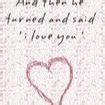 And then he
turned and said
'i love you'